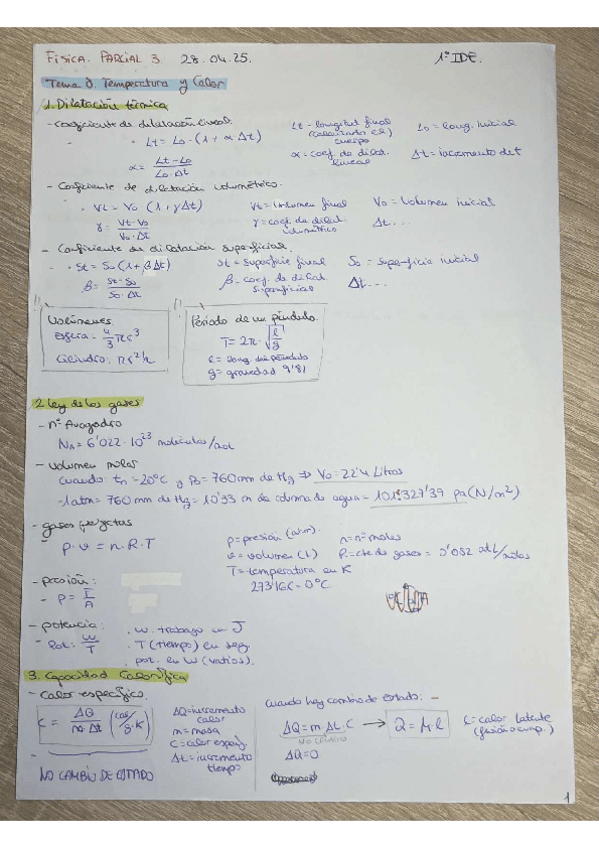 FÍSICA. PARCIAL 3. 28.04.25. 1º IDE.
Tema 8. Temperatura y Calor
1. Dilatación térmica
- Coeficiente de dilatación lineal.
· Lt = Lo · (1 + α · Δt)
Lt = longitud final (calentado el cuerpo)
Lo = long. inicial
α = (Lt - Lo) / (Lo · Δt)
α = coef. de dilat. lineal
Δt = incremento de t
- Coeficiente de dilatación volumétrico.
· Vt = Vo (1 + γΔt)
Vt = Volumen final
Vo = Volumen inicial
γ = (Vt - Vo) / (Vo · Δt)
γ = coef. de dilat. volumétrico
Δt...
- Coeficiente de dilatación superficial.
· St = So (1 + βΔt)
St = superficie final
So = superficie inicial
β = (St - So) / (So · Δt)
β - coef. de dilat. superficial
Δt...
Volúmenes.
esfera: 4/3 πr³
Cilindro: πr²h
Período de un péndulo.
T = 2π · √(l/g)
l = long. del péndulo
g = gravedad 9'81
2. Ley de los gases
- nº Avogadro
NA = 6'022 · 10²³ moléculas/mol
- Volumen molar
cuando: tn = 20ºC y Po = 760 mm de Hg ⇒ Vo = 22'4 Litros
- 1 atm = 760 mm de Hg = 10'33 m de columna de agua = 101.327'39 pa (N/m²)
- gases perfectos
p · v = n · R · T
p = presión (atm).
n = nº moles
v = volumen (l)
R = cte de gases = 0'082
T = temperatura en K
273'16K = 0ºC
- presión:
- P = F/A
- potencia:
- Pot. = W/T
· W. trabajo en J
· T (tiempo) en seg.
· pot. en W (vatios).
3. Capacidad Calorífica
- Calor específico.
C = ΔQ / (m · Δt) (cal / g · K)
ΔQ = incremento calor
m = masa
C = calor espey.
Δt = incremento tiempo
-
NO CAMBIO DE ESTADO
Cuando hay cambio de estado: -
ΔQ = m · Δt · C → Q = M · l
NO CAMBIO
ΔQ = 0
l = calor latente (fusión o evap.)
1